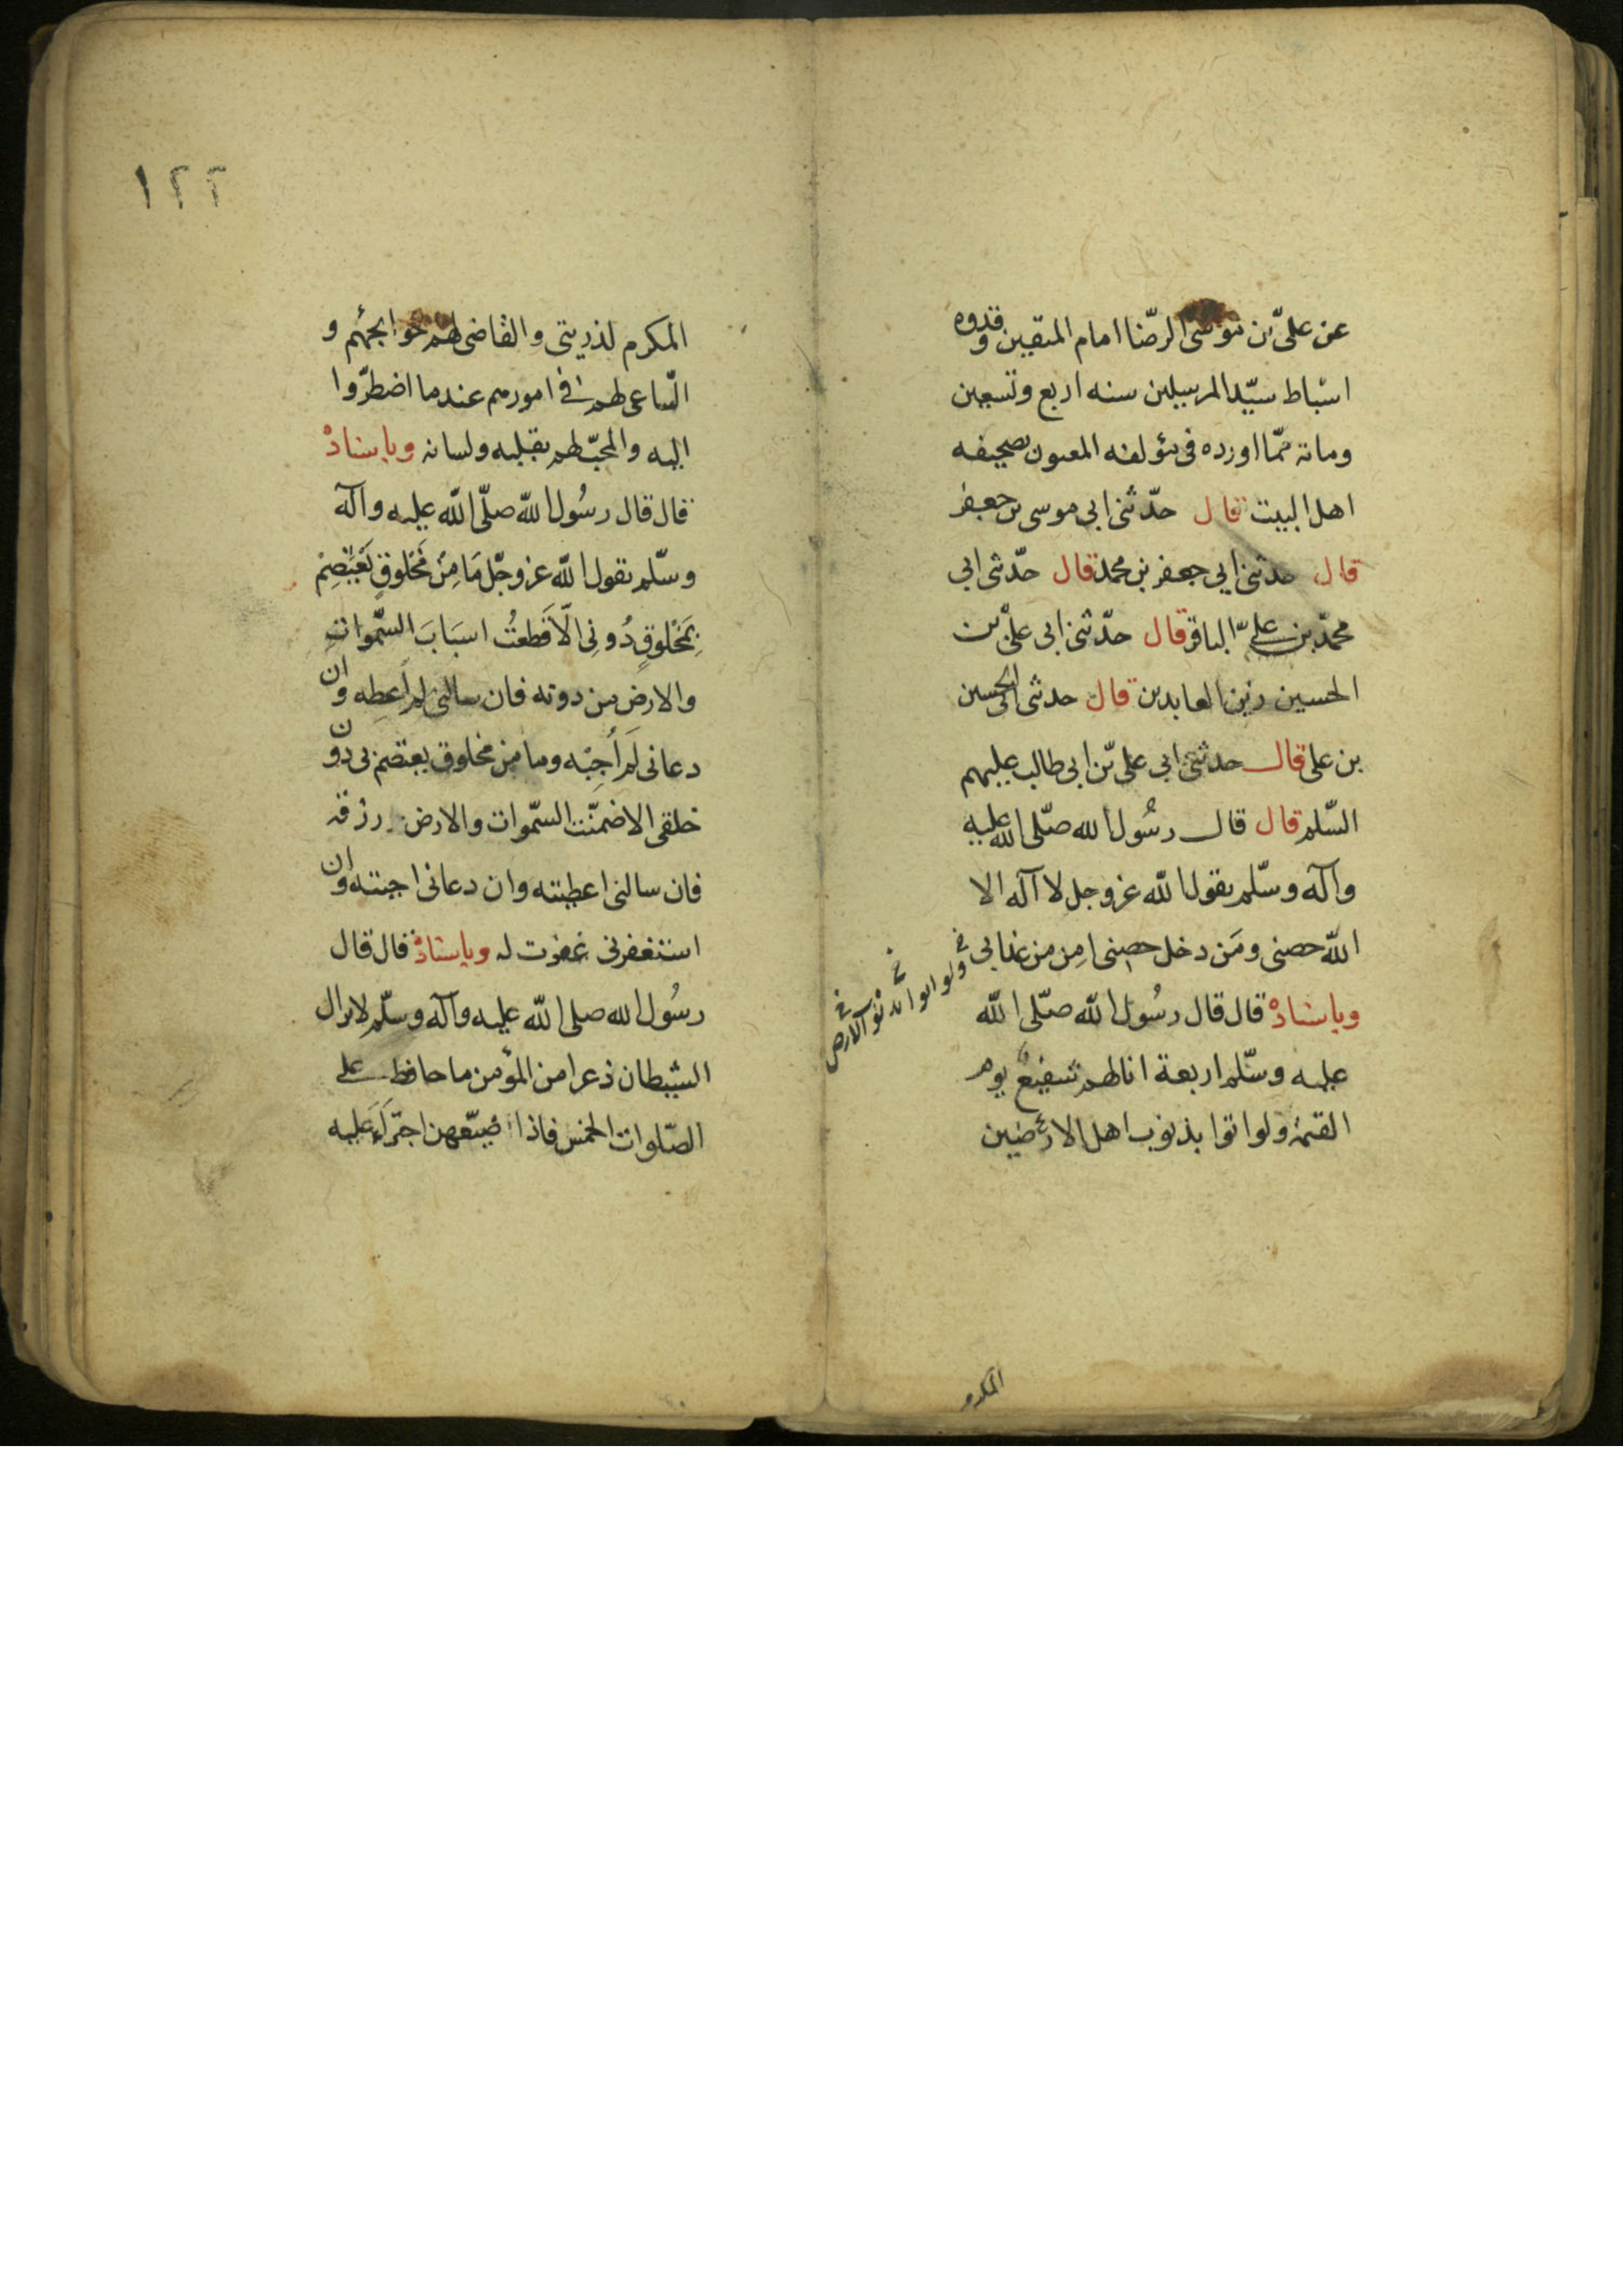 عن علىّ بن موسى الرضّا امام المتقين وقدوه
اسباط سيّد المرسلين سنه اربع وتسعين
ومائة ممّا اورده فى مؤلفه المعنون بصحيفه
اهل البيت قال حدّثنى ابى موسى بن جعفر
قال حدثنى ابى جعفر بن محمد قال حدّثى ابى
محمّد بن على الباقر قال حدّثنى ابى علىّ بن
الحسين زين العابدين قال حدثى ابى الحسين
بن على قال حدثنى ابى علىّ بن ابى طالب عليهم
السّلم قال قال رسُول الله صلّى الله عليه
وآله وسلّم يقول الله عز وجل لا آله الا
الله حصنى ومَن دخل حصنى امِن من عذابى
وباسناده قال قال رسُول الله صلّى الله
عليه وسلّم اربعة انا لهم شفيعٌ يوم
القيمة ولو اتوا بذنوب اهل الارضين
ولو اتوا الارض
المكرم
١٢٢
المكرم لذريتى والقاضى لهم حوايجهُم و
السّاعى لهم فى امورهم عندما اضطرّوا
اليه والمحبّ لهم بقلبه ولسانه وباسناده
قال قال رسُول الله صلّى الله عليه وآله
وسلّم يقول الله عز وجّل مَا مِنْ مَخْلوقٍ يَعْتَصِمُ
بِمَخْلوقٍ دُونِى الّا قَطعتُ اسبَابَ السَّمواتِ
والارض من دونه فان سالنى لم اُعطِه وان
دعانى لَم اُجِبْه وما من مخلوق يعتصم بى دون
خلقى الا ضمنّت السّموات والارض رزقه
فان سالنى اعطيته وان دعانى اجبته وان
استغفرنى غفرت له وباسناده قال قال
رسُول الله صلى الله عليه وآله وسلّم لا يزال
الشيطان ذعرا من المؤمن ما حافظ على
الصّلوات الخمس فاذا ضيّعهن اجترَأ عَليه